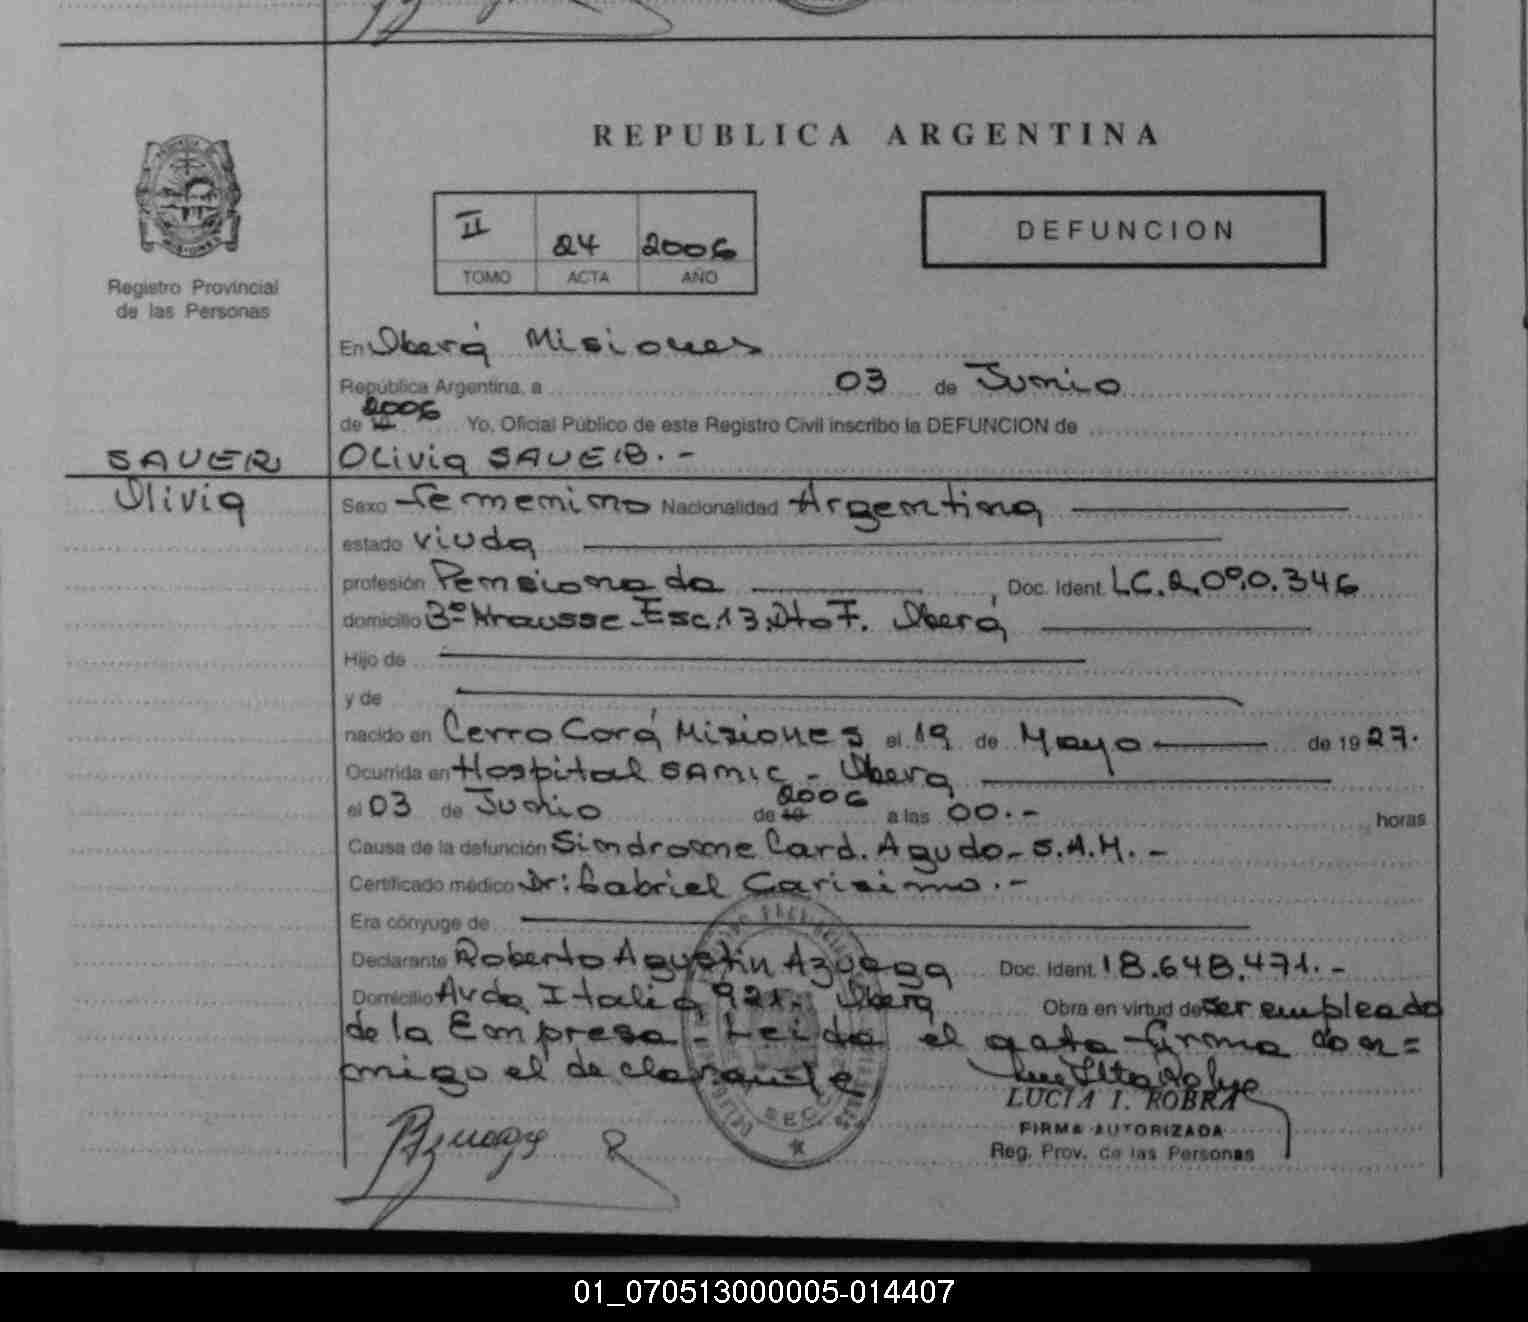 REPUBLICA ARGENTINA
II 24 2006
TOMO ACTA AÑO
DEFUNCION
Registro Provincial
de las Personas
En Oberá Misiones
República Argentina, a 03 de Junio
de 19 2006 Yo, Oficial Público de este Registro Civil inscribo la DEFUNCION de
SAUER Olivia SAUER.-
Olivia
Sexo femenino Nacionalidad Argentina
estado viuda
profesión Pensionada, Doc. Ident. LC.2.090.346
domicilio Bº Krausse-Esc.13.Dto F. Oberá
Hijo de
y de
nacido en Cerro Corá Misiones el 19 de Mayo de 1927.
Ocurrida en Hospital SAMIC - Oberá
el 03 de Junio de 19 2006 a las 00.- horas
Causa de la defunción Sindrome Card. Agudo-S.A.M.-
Certificado médico Dr: Gabriel Carisimo.-
Era cónyuge de
Declarante Roberto Agustin Azuaga Doc. Ident. 18.648.471.-
Domicilio Avda Italia 921. Oberá Obra en virtud de ser empleado
de la Empresa - Leida el acta firma con=
migo el declarante
LUCIA I. ROBRA
FIRMA AUTORIZADA
Reg. Prov. de las Personas
01_070513000005-014407